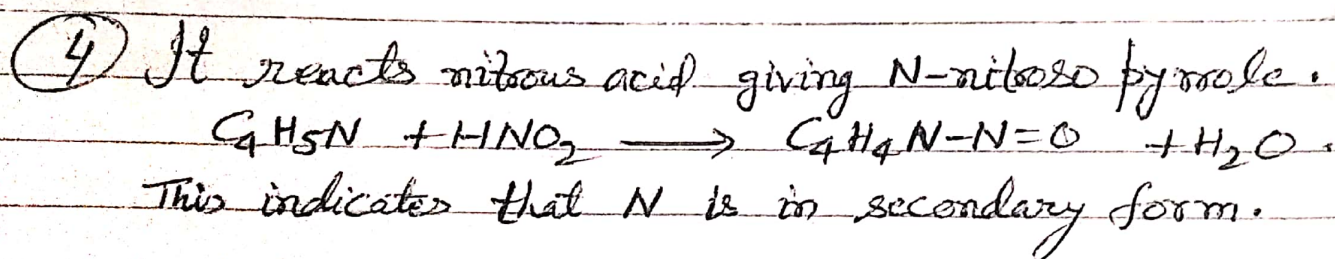 ④ It reacts nitrous acid giving N-nitroso pyrrole.
C₄H₅N + HNO₂ ⟶ C₄H₄N-N=O + H₂O.
This indicates that N is in secondary form.